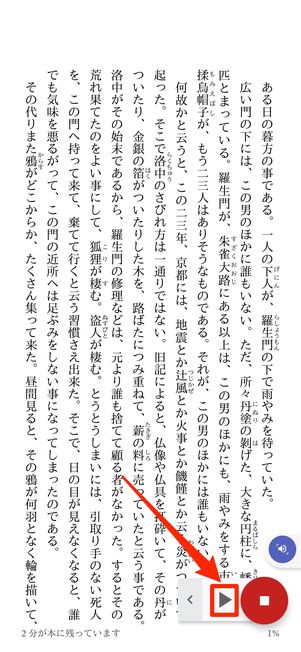 ある日の暮方の事である。一人の下人が、羅生門の下で雨やみを待っていた。
広い門の下には、この男のほかに誰もいない。ただ、所々丹塗の剥げた、大きな円柱に、
匹とまっている。羅生門が、朱雀大路にある以上は、この男のほかにも、雨やみをする
揉烏帽子が、もう二三人はありそうなものである。それが、この男のほかには誰もいない
何故かと云うと、この二三年、京都には、地震とか辻風とか火事とか饑饉とか云う災がつ
起った。そこで洛中のさびれ方は一通りではない。旧記によると、仏像や仏具を打砕いて、その丹が
ついたり、金銀の箔がついたりした木を、路ばたにつみ重ねて、薪の料に売っていたと云う事である。
洛中がその始末であるから、羅生門の修理などは、元より誰も捨てて顧る者がなかった。するとその
荒れ果てたのをよい事にして、狐狸が棲む。盗人が棲む。とうとうしまいには、引取り手のない死人
を、この門へ持って来て、棄てて行くと云う習慣さえ出来た。そこで、日の目が見えなくなると、誰
でも気味を悪るがって、この門の近所へは足ぶみをしない事になってしまったのである。
その代りまた鴉がどこからか、たくさん集って来た。昼間見ると、その鴉が何羽となく輪を描いて、
2 分が本に残っています
1%